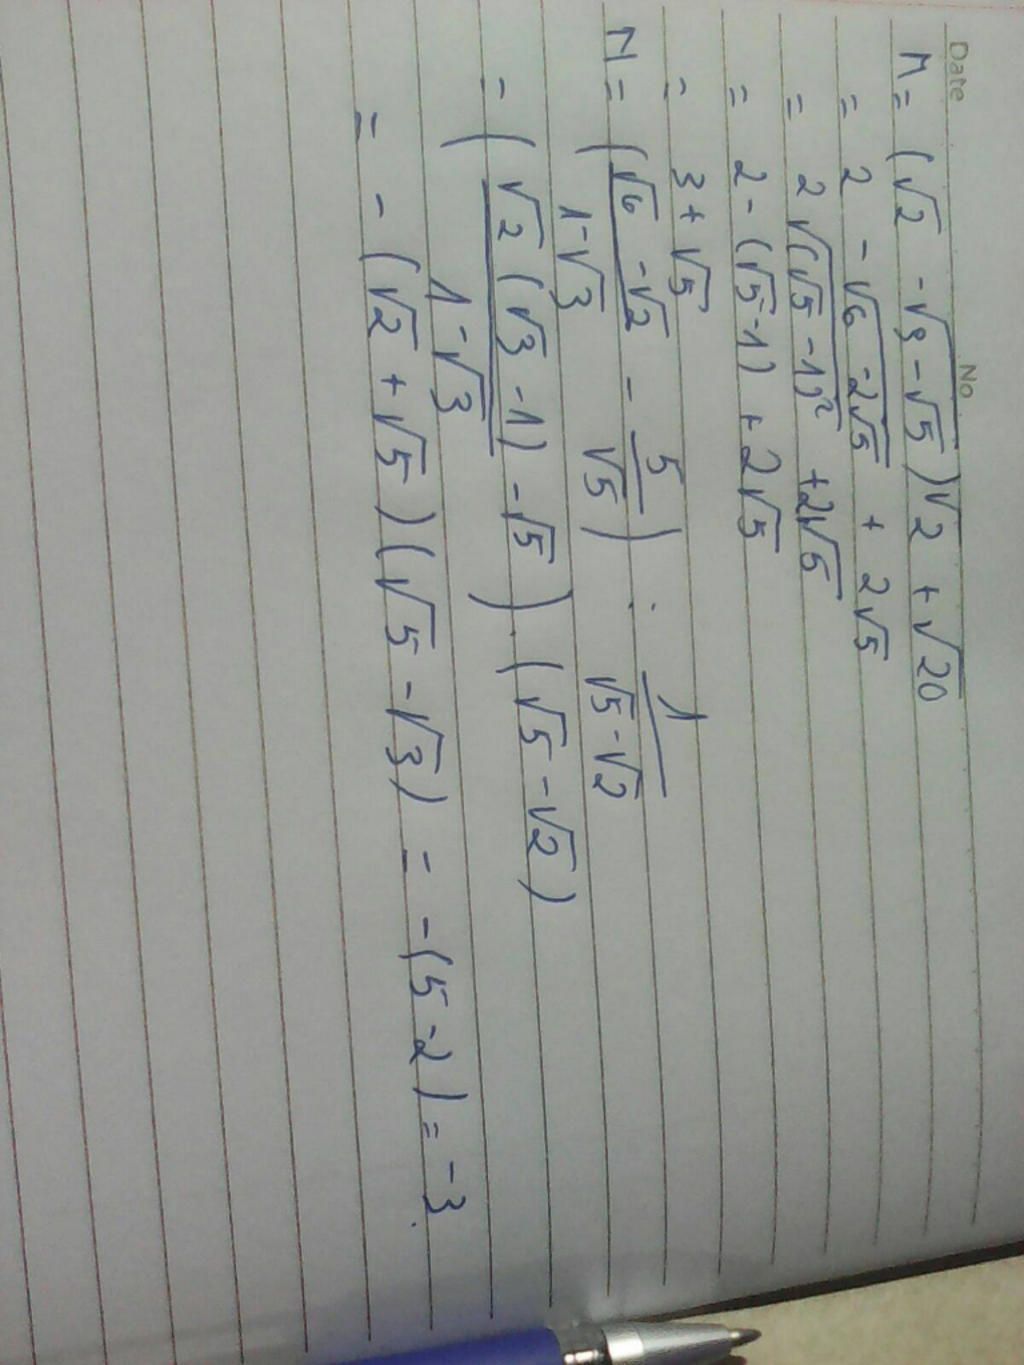 Date No
M = (√2 - √(3 - √5))√2 + √20
= 2 - √(6 - 2√5) + 2√5
= 2 √((√5 - 1)²) + 2√5
= 2 - (√5 - 1) + 2√5
= 3 + √5
N = ((√6 - √2)/(1 - √3) - 5/√5) : 1/(√5 - √2)
= (√2(√3 - 1)/(1 - √3) - √5) . (√5 - √2)
= - (√2 + √5)(√5 - √3) = - (5 - 2) = -3